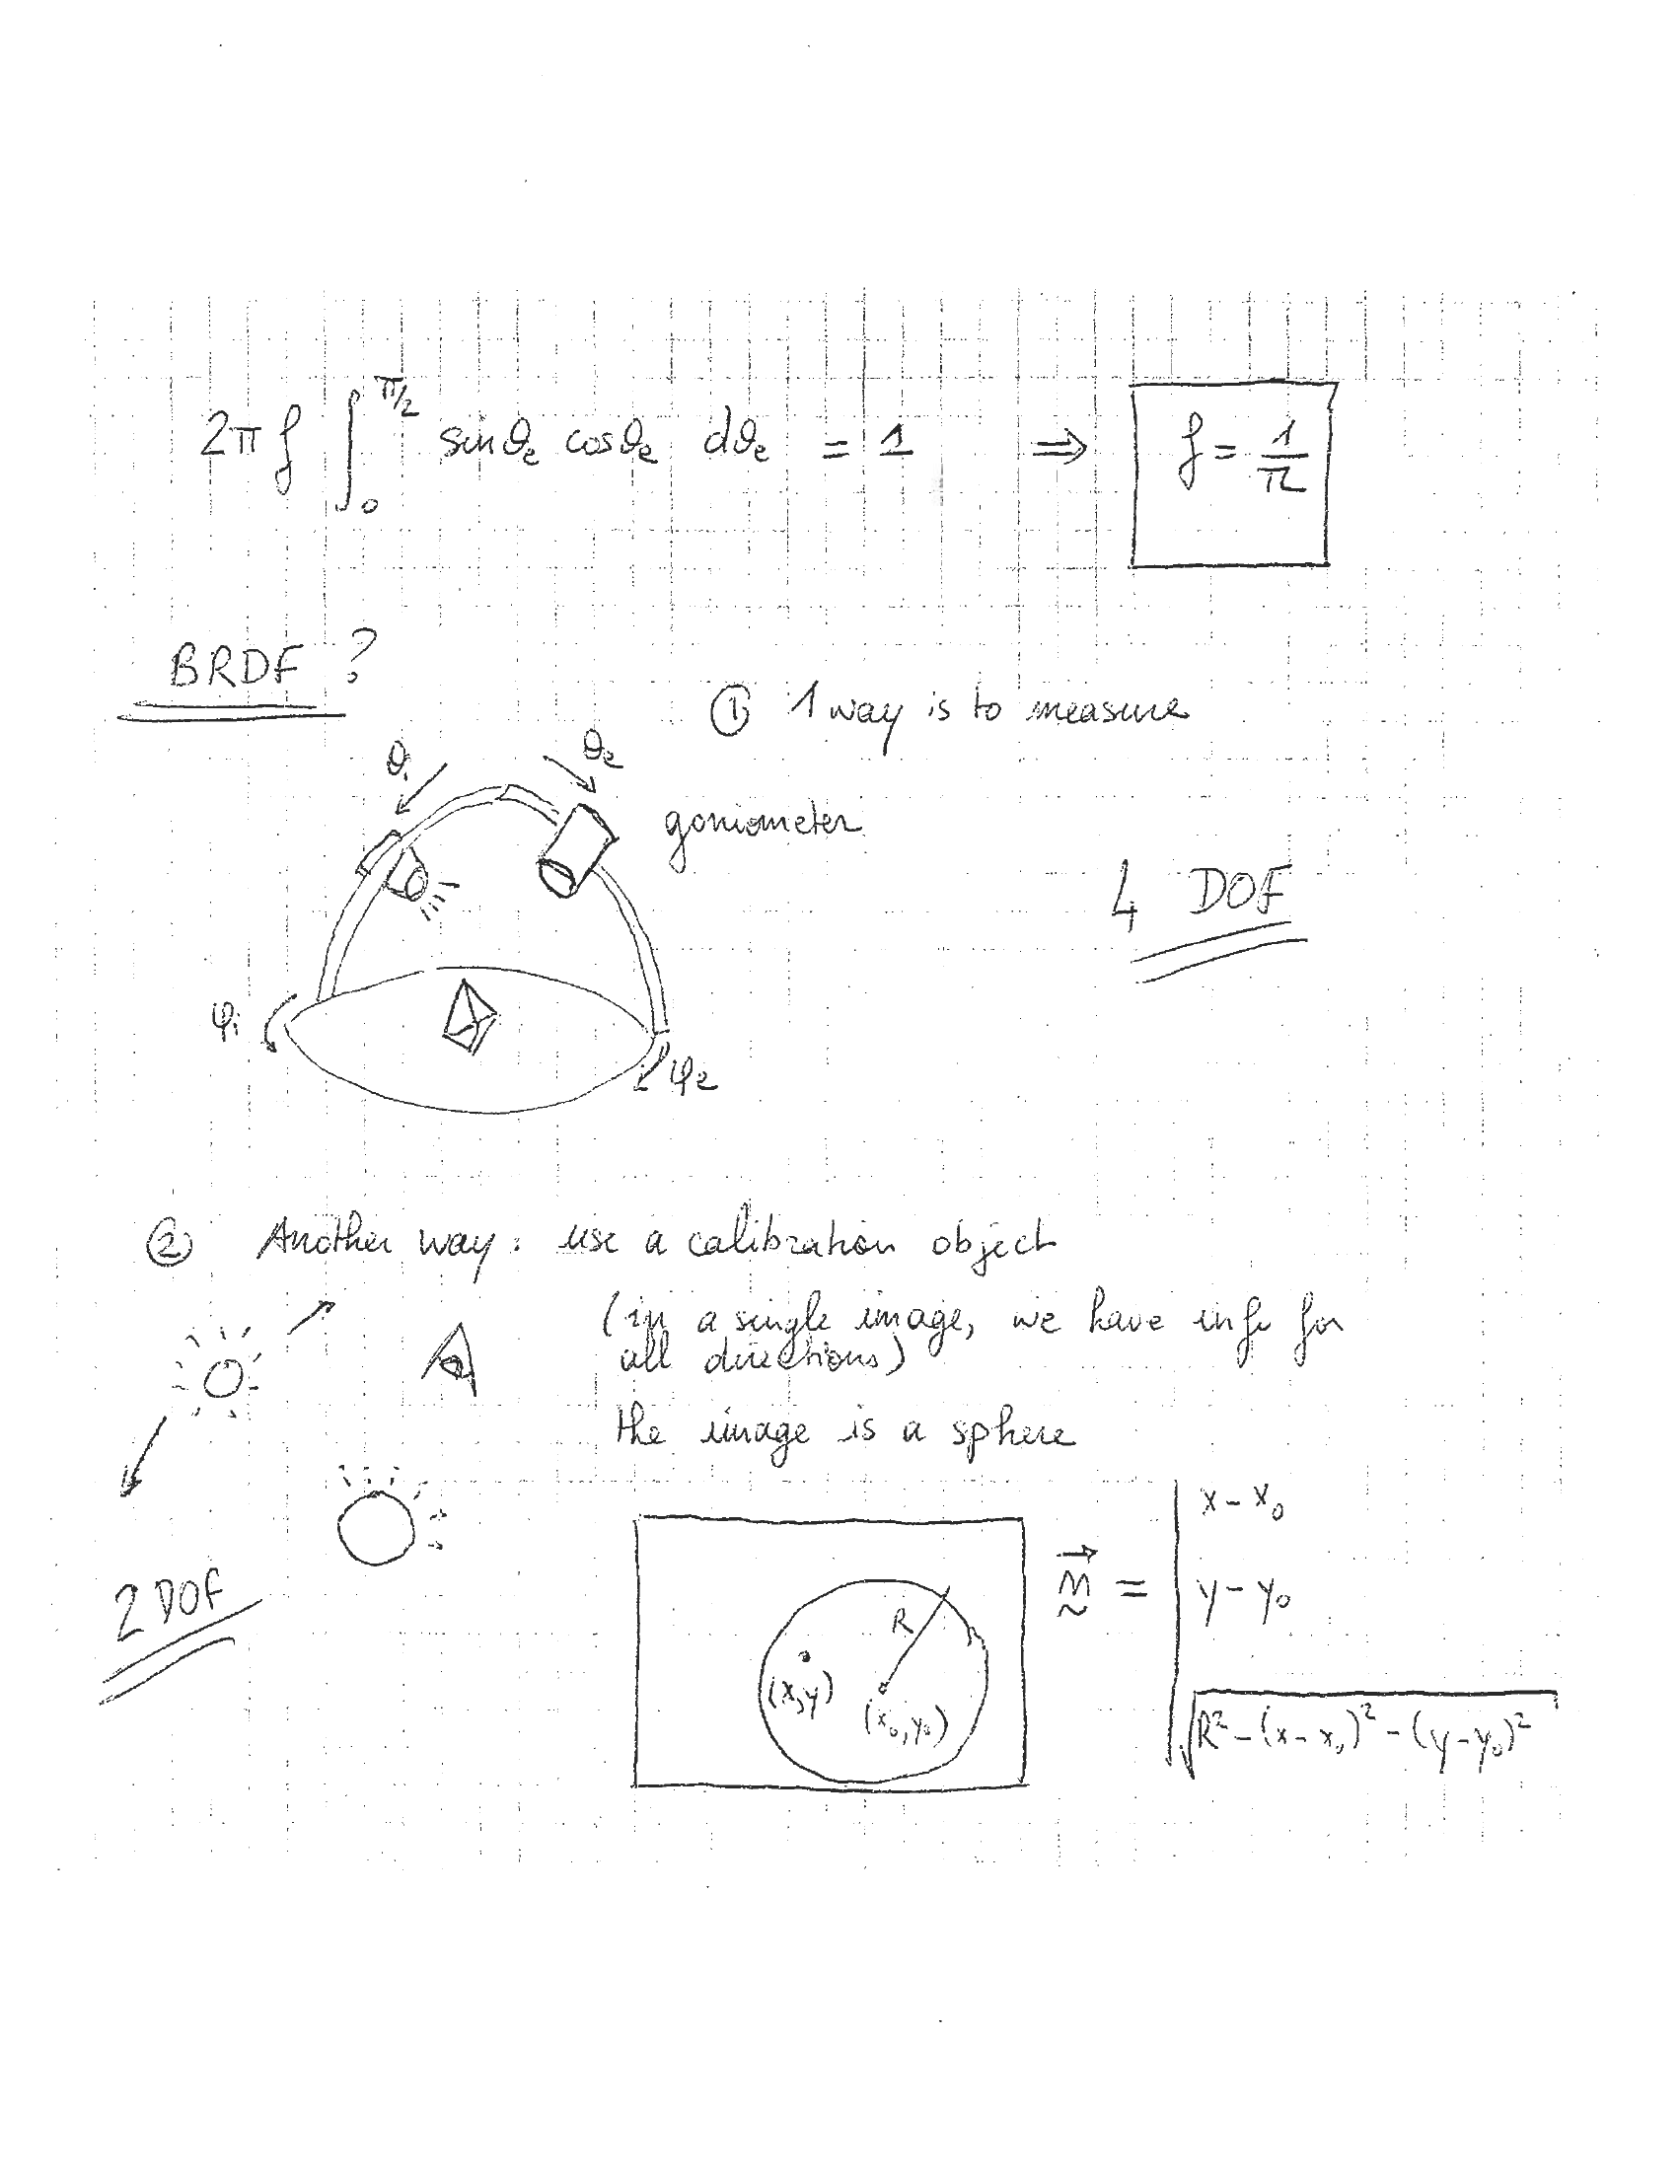 2π f ∫₀^π/2 sinθe cosθe dθe = 1 ⇒ f = 1/π
BRDF ?
① 1 way is to measure
θi θe
goniometer
4 DOF
φi
φe
② Another way : use a calibration object
(in a single image, we have info for
all directions)
the image is a sphere
2 DOF
x - x₀
n⃗ = y - y₀
R
(x,y)
(x₀,y₀)
√R² - (x - x₀)² - (y - y₀)²